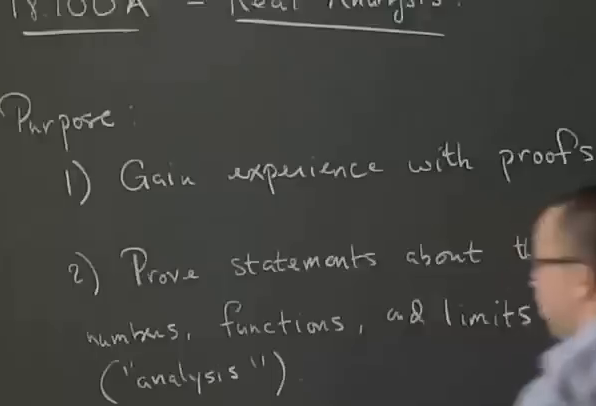 18.100A - Real Analysis.
Purpose:
1) Gain experience with proofs
2) Prove statements about
numbers, functions, and limits
("analysis")